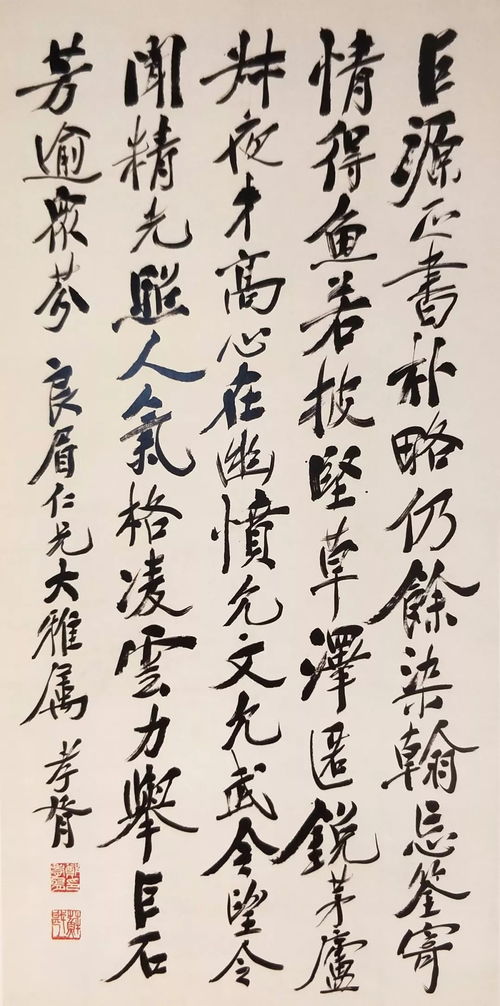 巨源正書朴略仍餘染翰忘筌寄
情得魚若披堅草澤匿銳茅廬
叔夜才高心在幽憤允文允武令望令
聞精光照人氣格凌雲力舉巨石
芳逾衆芬 良眉仁兄大雅屬 孝胥